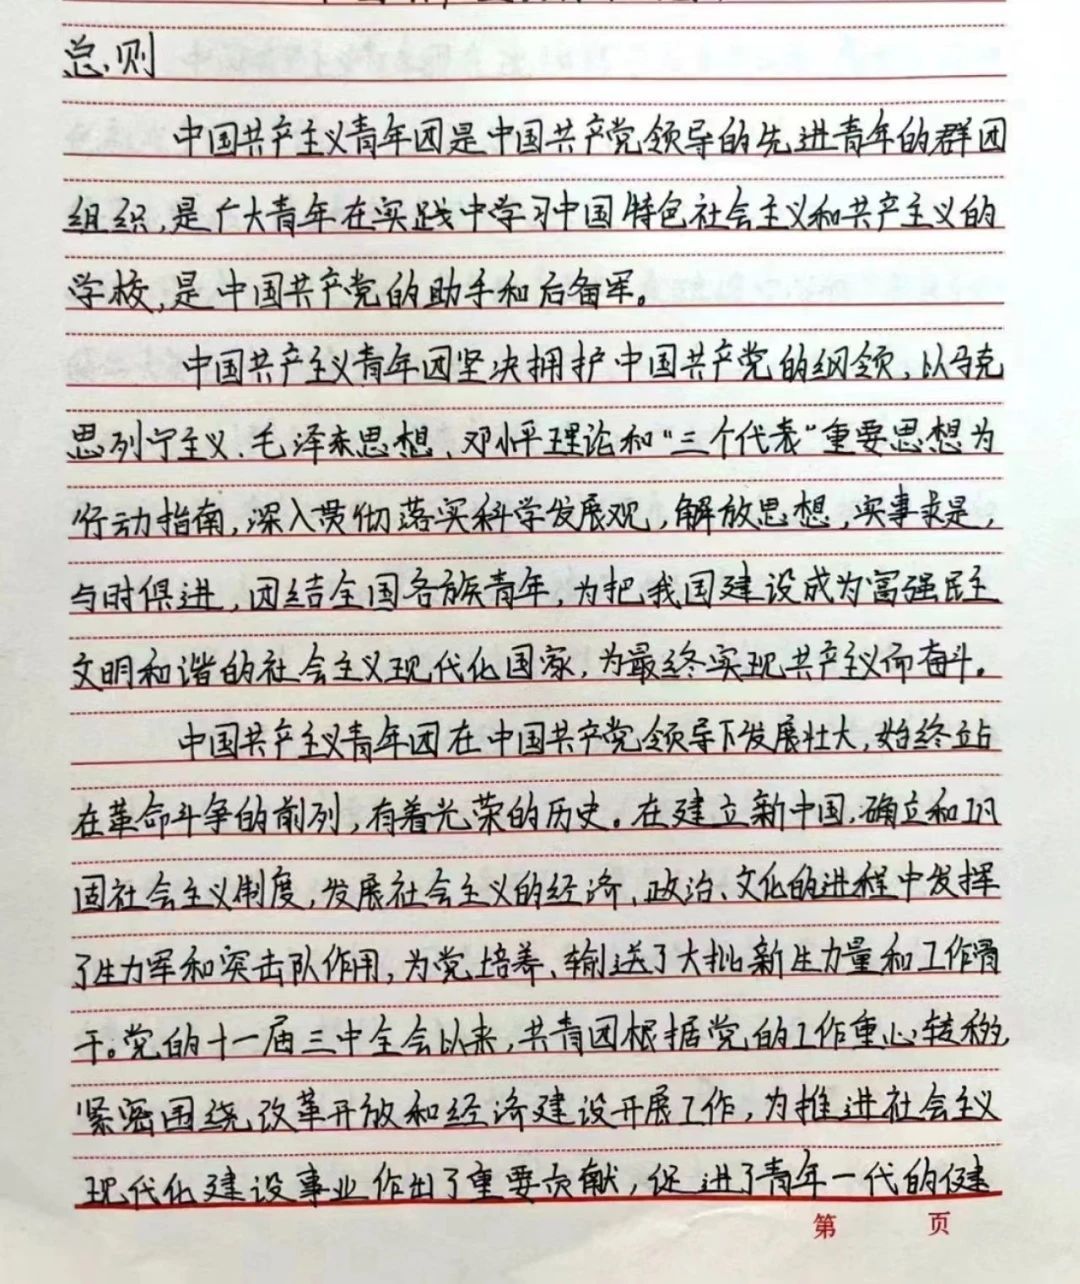 总则
中国共产主义青年团是中国共产党领导的先进青年的群团
组织,是广大青年在实践中学习中国特色社会主义和共产主义的
学校,是中国共产党的助手和后备军。
中国共产主义青年团坚决拥护中国共产党的纲领,以马克
思列宁主义、毛泽东思想、邓小平理论和“三个代表”重要思想为
行动指南,深入贯彻落实科学发展观,解放思想,实事求是,
与时俱进,团结全国各族青年,为把我国建设成为富强民主
文明和谐的社会主义现代化国家,为最终实现共产主义而奋斗。
中国共产主义青年团在中国共产党领导下发展壮大,始终站
在革命斗争的前列,有着光荣的历史。在建立新中国,确立和巩
固社会主义制度,发展社会主义的经济、政治、文化的进程中发挥
了生力军和突击队作用,为党培养、输送了大批新生力量和工作骨
干。党的十一届三中全会以来,共青团根据党的工作重心转移,
紧密围绕改革开放和经济建设开展工作,为推进社会主义
现代化建设事业作出了重要贡献,促进了青年一代的健
第 页